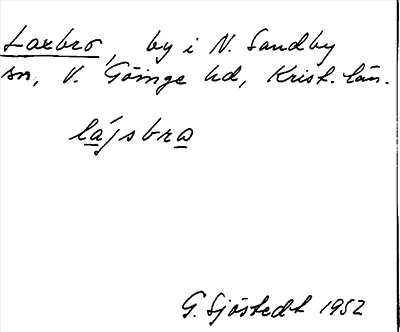 Laxbro, by i N. Sandby
sn, V. Göinge hd, Krist. län.
lájsbra
G. Sjöstedt 1952